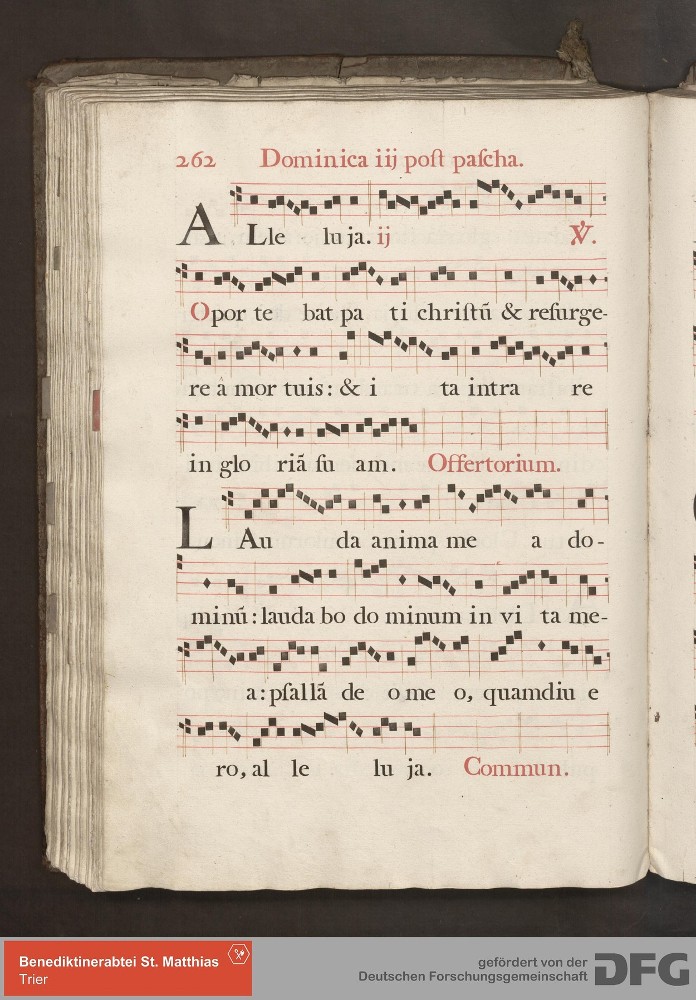 262 Dominica iij poſt paſcha.
A Lle lu ja. ij ℣.
Opor te bat pa ti chriſtũ & reſurge-
re à mor tuis: & i ta intra re
in glo riã ſu am. Offertorium.
L Au da anima me a do-
minũ: lauda bo do minum in vi ta me-
a: pſallã de o me o, quamdiu e
ro, al le lu ja. Commun.
Benediktinerabtei St. Matthias
Trier
gefördert von der
Deutschen Forschungsgemeinschaft
DFG